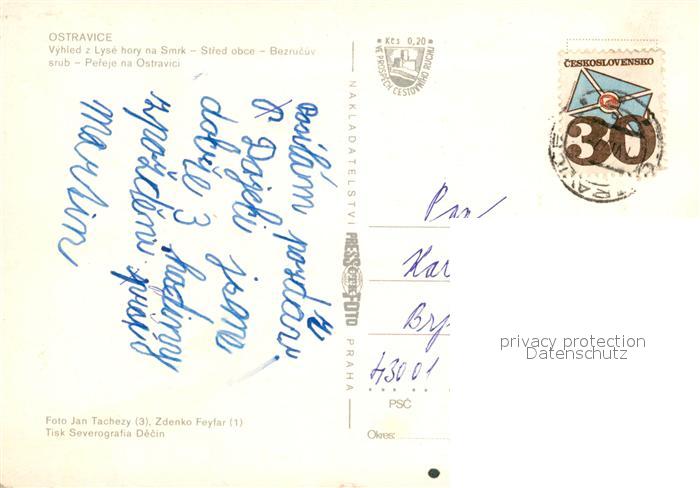 OSTRAVICE
Výhled z Lysé hory na Smrk – Střed obce – Bezručův
srub – Peřeje na Ostravici
Kčs 0,20
VE PROSPĚCH CESTOVNÍHO RUCHU
ČESKOSLOVENSKO
30
posílám pozdrav z
Dojeli jsme
dobře 3 hodiny
zpoždění
Martin
NAKLADATELSTVÍ PRESSFOTO PRAHA
Pan
43001
PSČ
Okres:
Foto Jan Tachezy (3), Zdenko Feyfar (1)
Tisk Severografia Děčín
privacy protection
Datenschutz